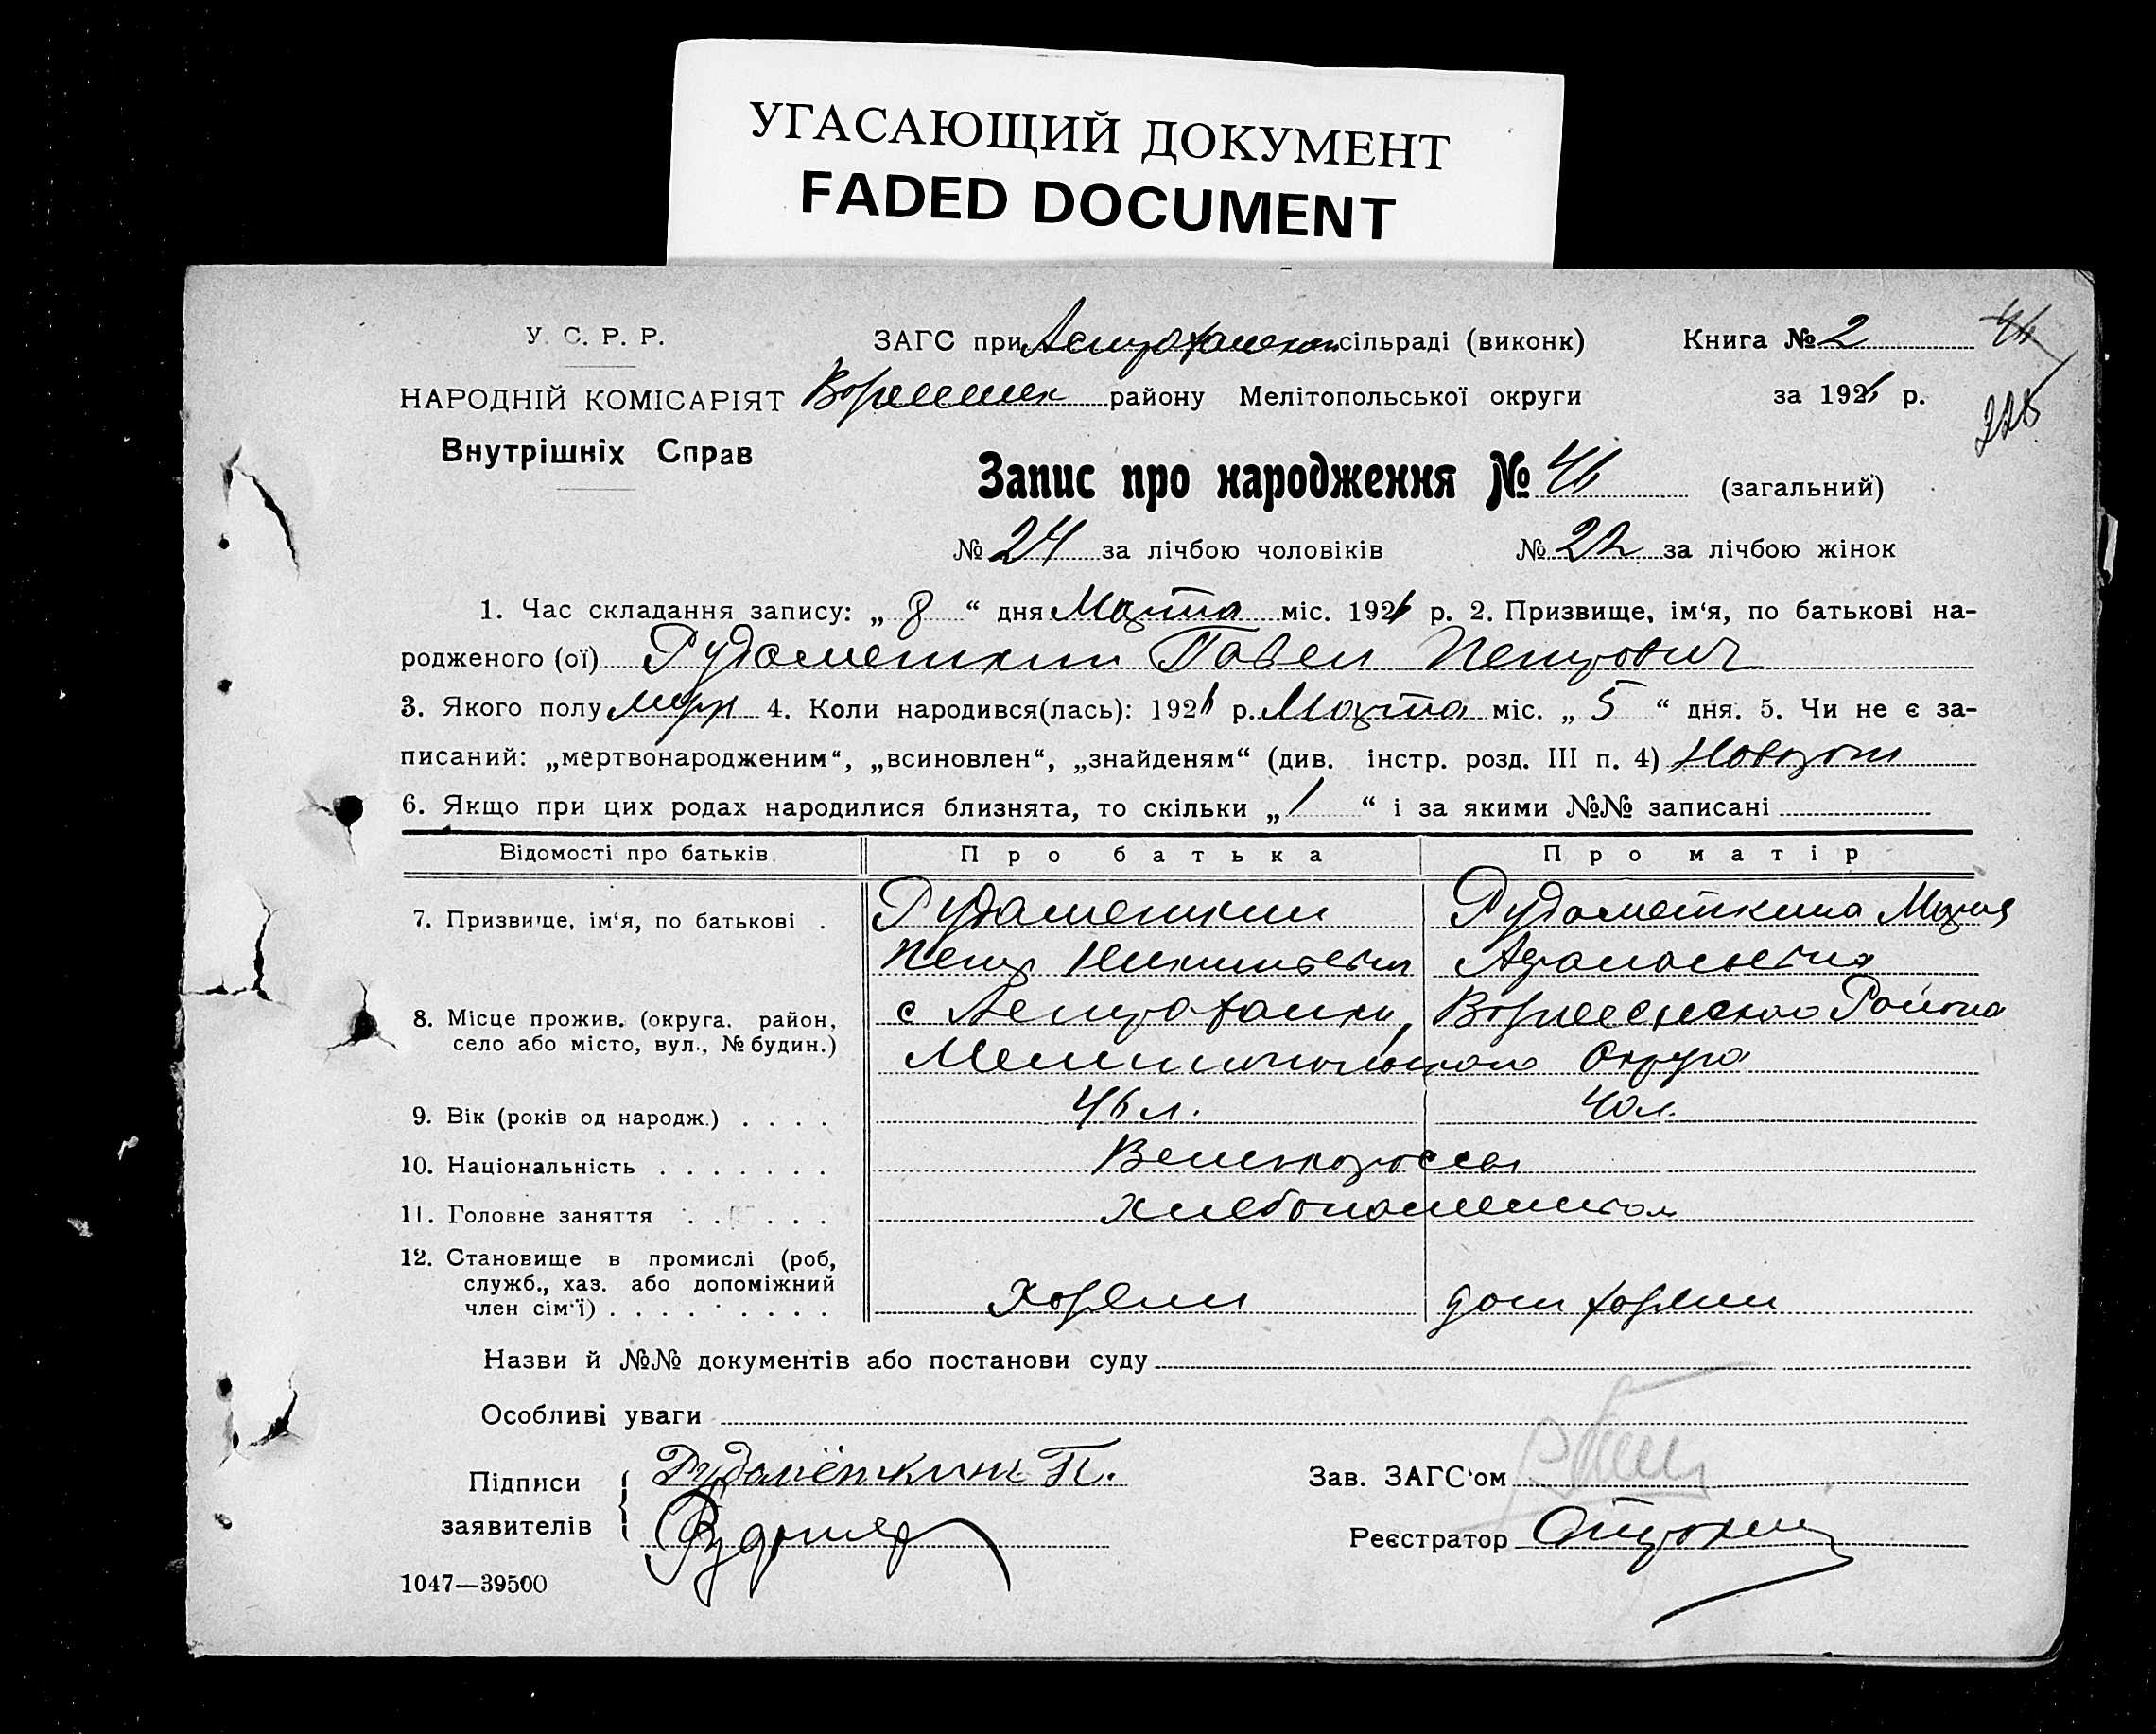 УГАСАЮЩИЙ ДОКУМЕНТ
FADED DOCUMENT
У. С. Р. Р.
ЗАГС при Астраханском сільраді (виконк) Книга № 2 46
НАРОДНІЙ КОМІСАРІЯТ Вознесенск району Мелітопольської округи за 1926 р.
Внутрішніх Справ
Запис про народження № 46 (загальний)
№ 24 за лічбою чоловіків № 22 за лічбою жінок
1. Час складання запису: „ 8 “ дня Марта міс. 1926 р. 2. Призвище, ім‘я, по батькові на-
родженого (ої) Рудометкин Павел Петрович
3. Якого полу муж 4. Коли народився(лась): 1926 р. Марта міс. „ 5 “ дня. 5. Чи не є за-
писаний: „мертвонародженим“, „всиновлен“, „знайденям“ (див. інстр. розд. III п. 4)
6. Якщо при цих родах народилися близнята, то скільки „ 1 “ і за якими №№ записані
Відомості про батьків. Про батька Про матір
7. Призвище, ім‘я, по батькові . Рудаметкин Рудометкина Мария
Петр Никитович Афанасьевна
8. Місце прожив. (округа. район, с Астраханки, Вознесенского Района
село або місто, вул., № будин.) Мелитопольского Округа
9. Вік (років од народж.) . . . . 46 л. 40 л.
10. Національність . . . . . . . Великороссы
11. Головне заняття . . . . . . Хлебопашеством
12. Становище в промислі (роб,
служб., хаз. або допоміжний
член сім‘ї) . . . . . . . . . Хозяин дом хозяин
Назви й №№ документів або постанови суду
Особливі уваги
Підписи Рудомёткинъ П. Зав. ЗАГС‘ом
заявителів Реєстратор
1047—39500